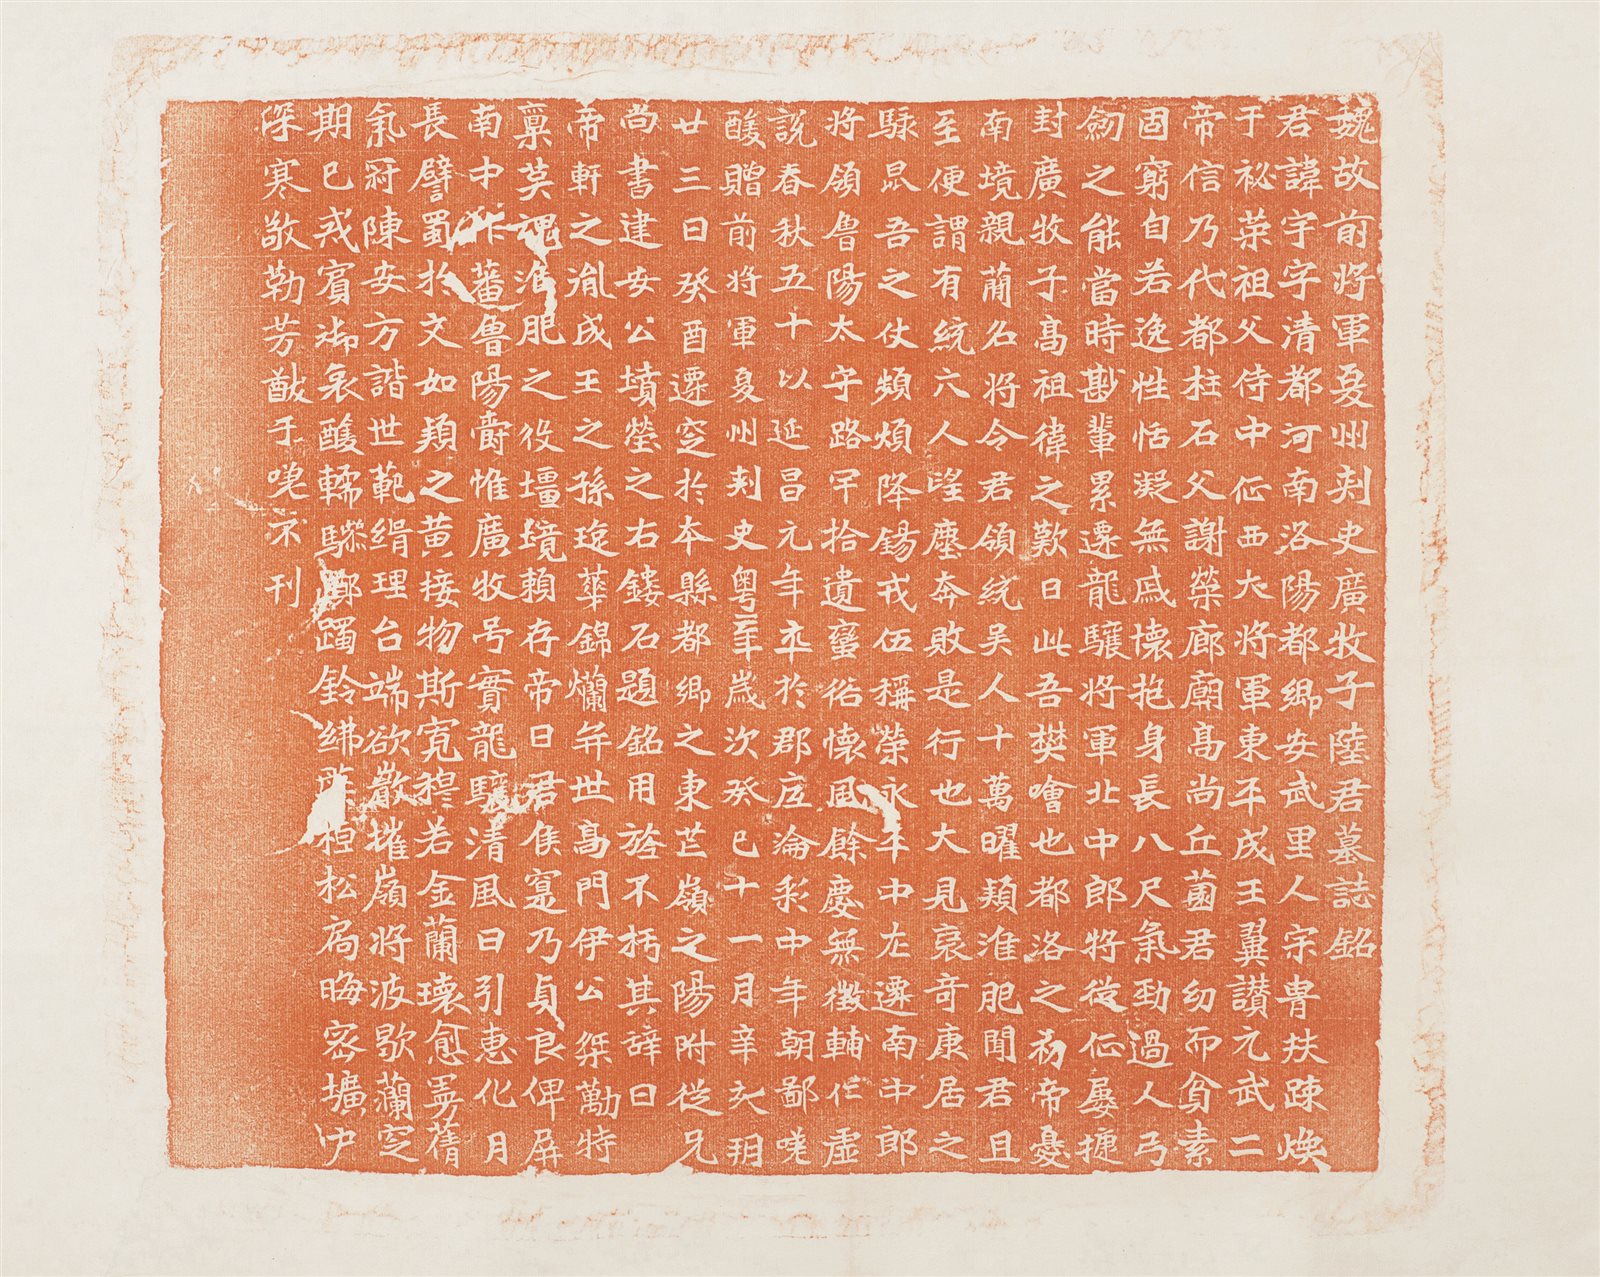 魏故前將軍夏州刺史廣牧子陸君墓誌銘
君諱宇字清都河南洛陽都鄉安武里人宗冑扶疎煥
于祕菜祖父侍中征西大將軍東平成王翼讃元武二
帝信乃代都柱石父謝榮廊廟高尚丘薗君幼而貧素
固窮自若逸性恬凝無慼懷抱身長八尺氣勁過人弓
劒之能當時尠輩累遷龍驤將軍北中郎將從征屢捷
封廣牧子高祖徫之歎曰此吾樊噲也都洛之初帝憂
南境親蕳名將令君領統吴人十萬曜頬淮肥聞君且
至便謂有統六人望塵奔敗是行也大見裒奇康居之
駼昆吾之仗頻煩降錫戎伍稱榮永平中左遷南中郎
將領魯陽太守路罕拾遺蠻俗懷風餘慶無徵輔仁虛
說春秋五十以延昌元年卒於郡庄淪彩中年朝鄙嗟
酸贈前將軍夏州刾史粵二年歲次癸巳十一月辛亥玥
廿三日癸酉遷窆於本縣都鄉之東芒嶺之陽附從兄
尚書建安公墳塋之右鏤石題銘用旌不朽其辞曰
帝軒之胤成王之孫琁蕐錦爛弈世高門伊公桀勱特
稟英魂淮肥之役壃境賴存帝曰君隹寔乃貞良俾屏
南中作蕃魯陽爵惟廣牧号實龍驤清風日引惠化月
長譬蜀於文如頬之黄接物斯寬穆若金蘭瓌愈𠔏蒨
氣冠陳安方諧世範緝理台端欲嚴摧嶺將波歇瀾窆
期巳戒賓御哀酸轜驂躑躅鈴紼酸桓松扃晦宻壙户
深寒敬勒芳猷千㖼不刊